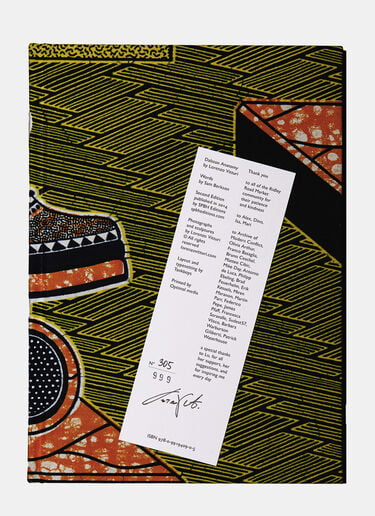 Dalston Anatomy
by Lorenzo Vitturi
Words
by Sam Berkson
Second Edition
published in 2014
by SPBH Editions
spbheditions.com
Photographs
and sculptures
by Lorenzo Vitturi
© All rights
reserved
lorenzovitturi.com
Layout and
typesetting by
Tankboys
Printed by
Optimal media
Thank you
to all of the Ridley
Road Market
community for
their patience
and kindness
to Alex, Dino,
Isa, Mari
to Archive of
Modern Conflict,
Olivia Arthur,
Franco Basaglia,
Bruno Ceschel,
Michael
Mike Day, Antonio
de Luca, Philipp
Ebeling, Brad
Feuerhelm, Erik
Kessels, Miren
Marañón, Martin
Parr, Federico
Pepe, Jonas
Pfaff, Francesca
Seravalle,
Vitturi, Barbara
Warburton
Giliberti, Patrick
Waterhouse
a special thanks
to Lu, for all
her support, her
suggestions, and
for inspiring me
every day
Nº 305
999
ISBN 978-0-9575409-0-5